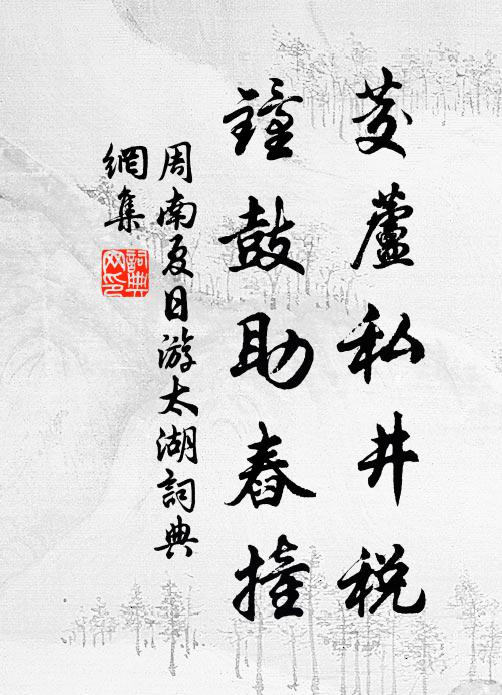 茭蘆私井税
鐘鼓助舂撞
周南夏日游太湖詞典
網集
詞典網印